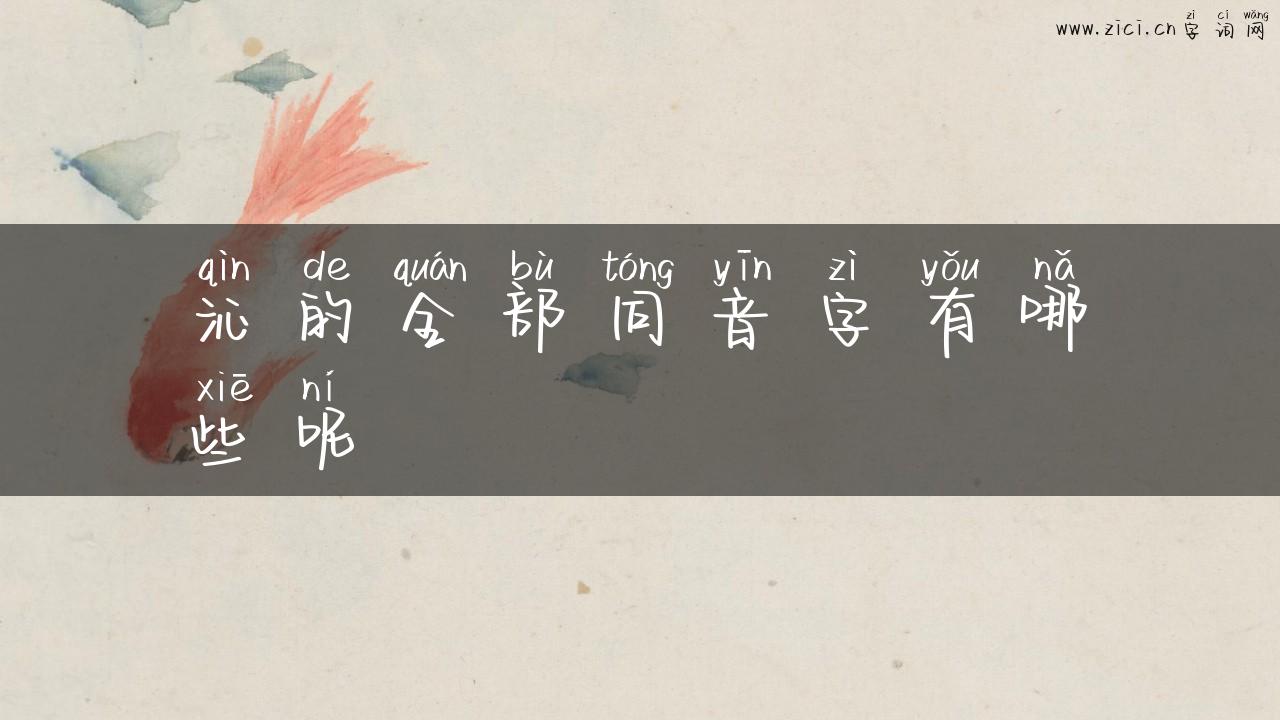 zì cí wǎng
www.zici.cn 字词网
qìn de quán bù tóng yīn zì yǒu nǎ
沁的全部同音字有哪
xiē ní
些呢